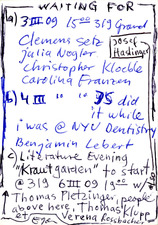 WAITING FOR
a) 3 III 09 15⁰⁰ 319 Grand
Clemens Setz
Josef Haslinger
Julia Nogler
Christopher Kloeble
Carolina Franzen
b) 4 III " " 35 did
it while
i was @ NYU Dentistry
Benjamin Lebert
c) Literature Evening
"Krautgarden" to start
@ 319 6 III 09 19⁰⁰ w/
Thomas Pletzinger, people
above here, Thomas Klupp
et Verena Rossbacher